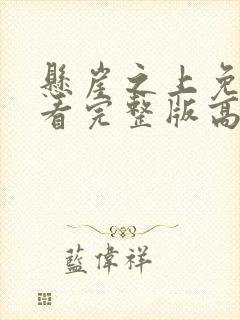 懸崖之上免
看完整版高
藍偉祥